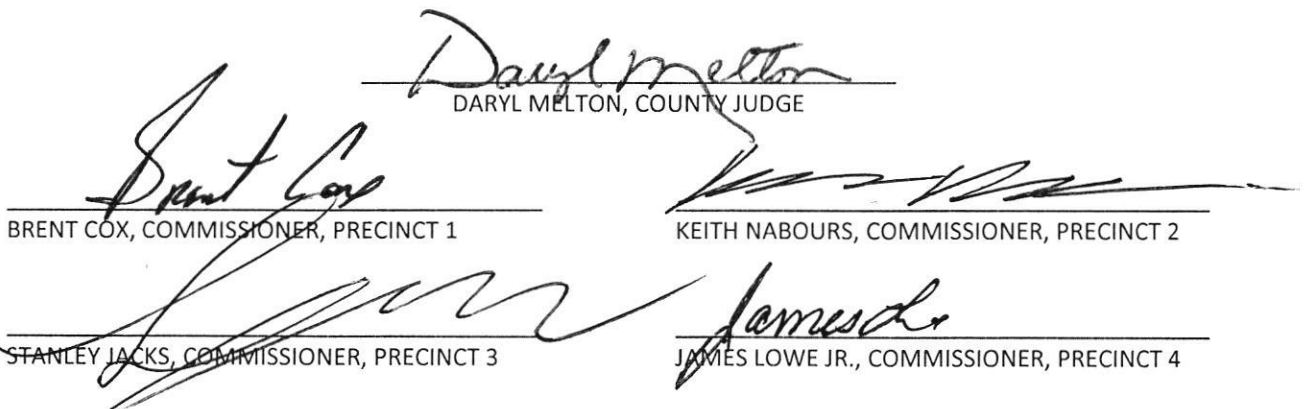 Daryl Melton
DARYL MELTON, COUNTY JUDGE
Brent Cox
BRENT COX, COMMISSIONER, PRECINCT 1
KEITH NABOURS, COMMISSIONER, PRECINCT 2
STANLEY JACKS, COMMISSIONER, PRECINCT 3
James
JAMES LOWE JR., COMMISSIONER, PRECINCT 4